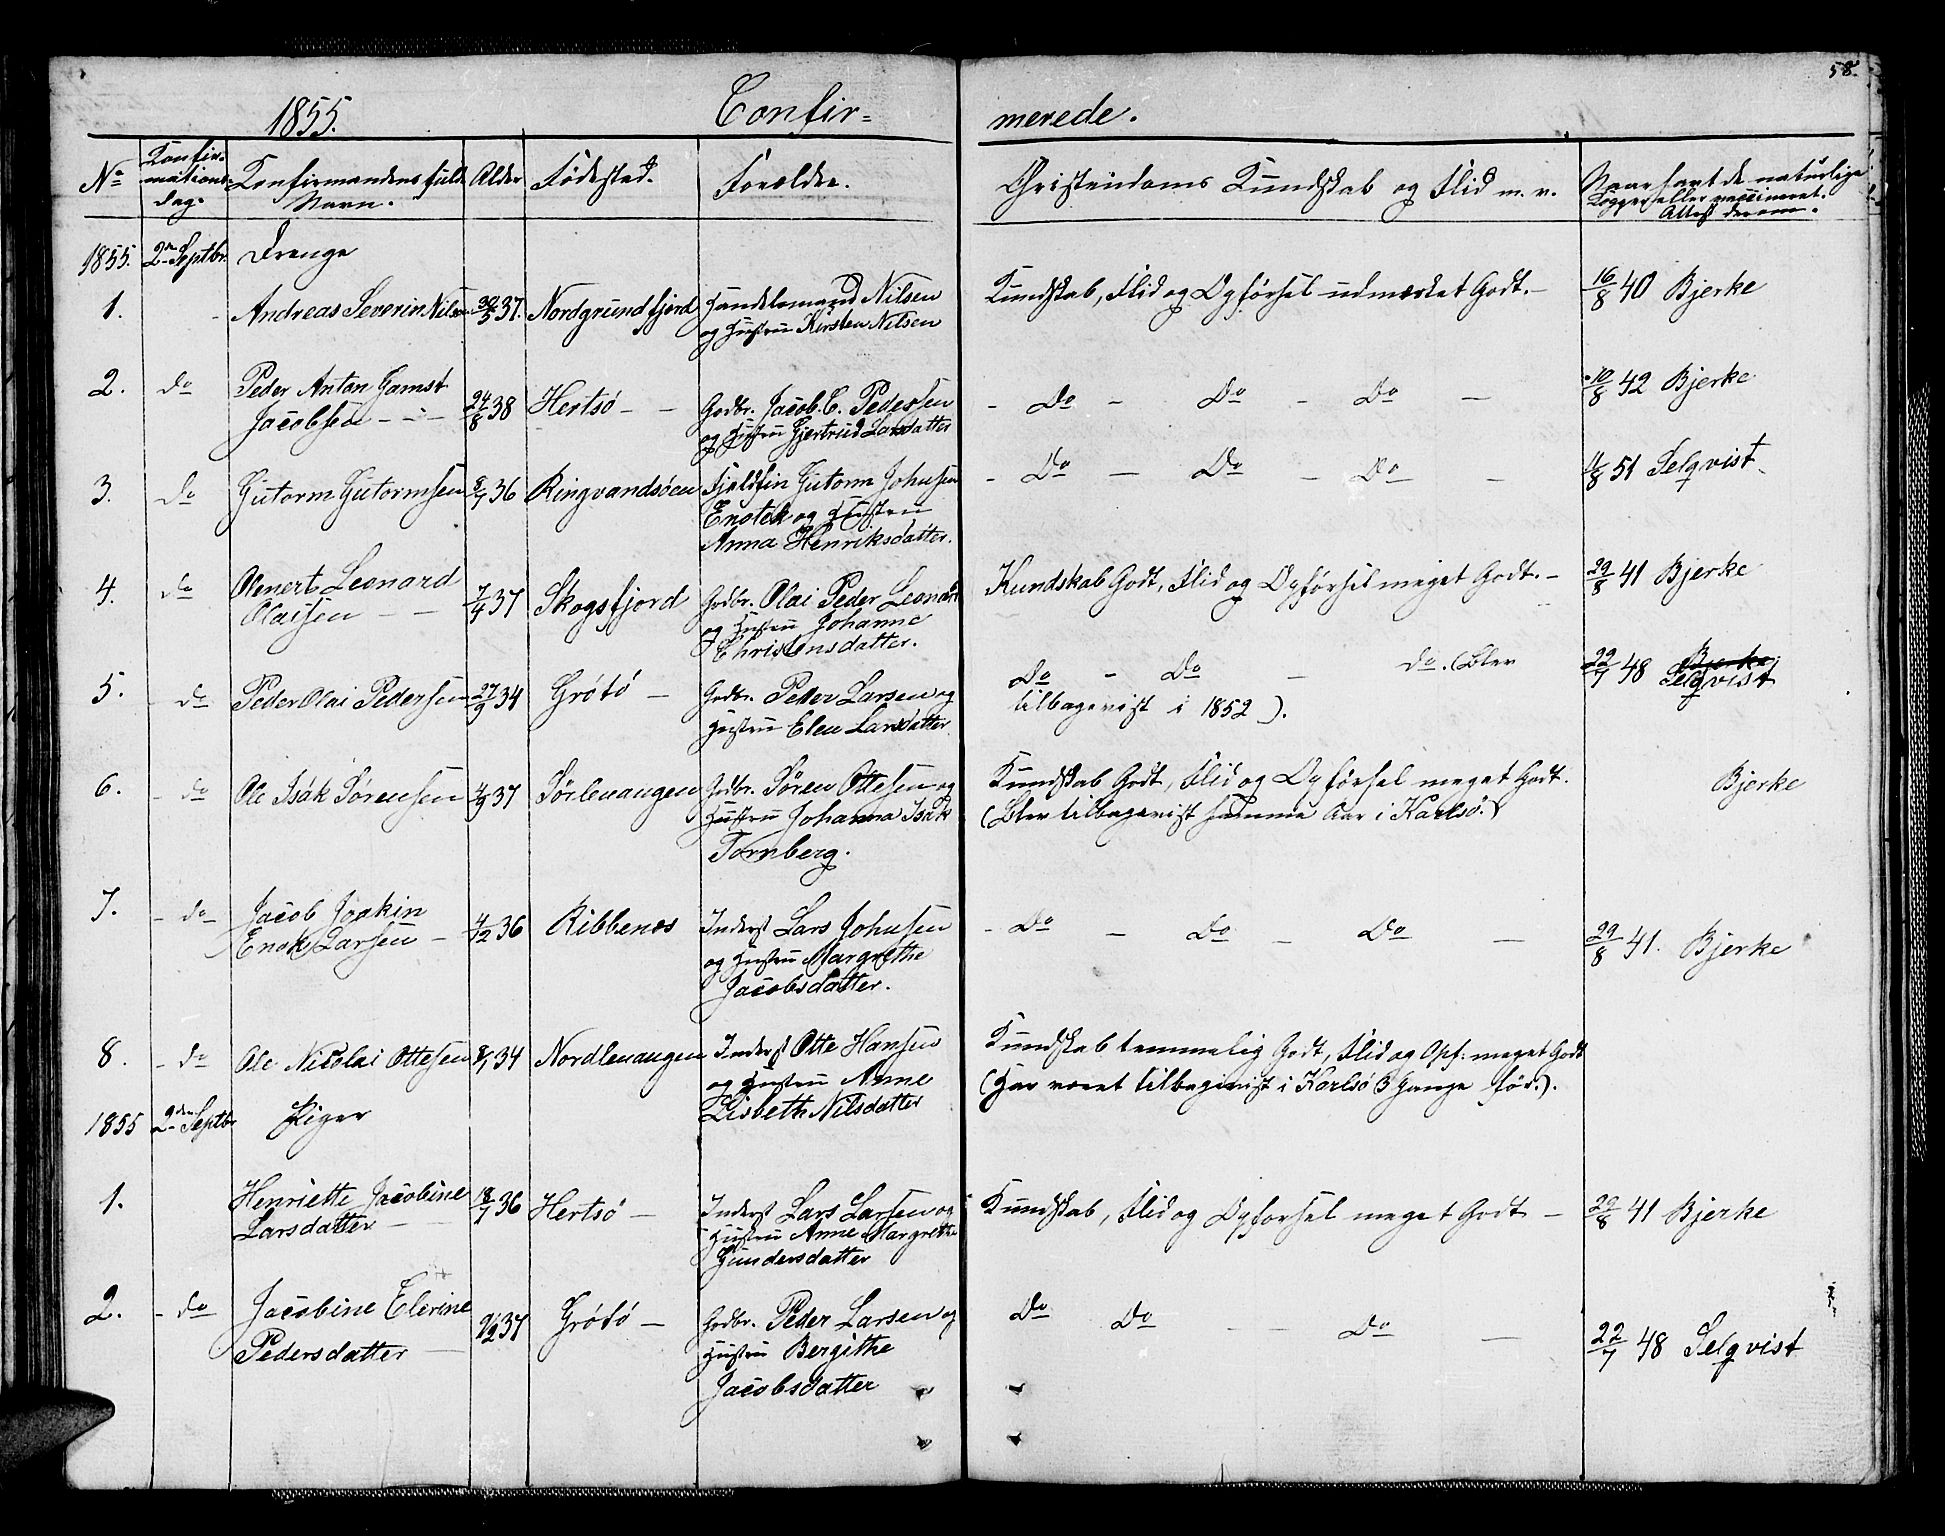 58.
1855. Confir= merede.
No Konfir= mations= Dag. Konfirmandens fulde Navn. Alder Fødested. Forældre. Christendoms Kundskab og Flid m. v. Naar havt de naturlige Kopper eller vaccineret. Attest derom.
1855. 2n Septbr. Drenge
1. Andreas Severin Nilsen 37. Nordgrundfjord Handelsmand Nilsen Kundskab, Flid og Opførsel udmærket Godt. – 16/8 40 Bjerke
og Hustru Kirsten Nilsen
2. do Peder Anton Gamst
Jacobsen – – 24/8 38 Hertsø – – Grdbr. Jacob C. Pedersen – Do – Do – Do – 10/8 42 Bjerke
og Hustru Gjertrud Larsdatter
3. do Gutorm Gutormsen 36 Ringvandsøen Fjeldfin Gutorm Johnsen – Do – Do – Do – 11/8 51 Selqvist
Enotek og Hustru
Anna Henriksdatter.
4. do Olenert Leonard
Olaisen – – 37 Skogsfjord Grdbr. Olai Peder Leonard Kundskab Godt, Flid og Opførsel meget Godt. – 29/8 41 Bjerke
og Hustru Johanne
Christensdatter.
5. – do Peder Olai Pedersen 27/9 34 Grøtø – Grdbr. Peder Larsen og Do – Do – do. (Blev 22/7 48 Bjerke Selqvist
Hustru Elen Larsdatter tilbagevist i 1852).
6. – do Ole Isak Sørensen 4/9 37 Sørlenangen Grdbr. Søren Ottesen og Kundskab Godt, Flid og Opførsel meget Godt. Bjerke
Hustru Johanna Isak (Blev tilbagevist samme Aar i Karlsø.)
Tornberg.
7. – do – Jacob Joakin
Enok Larsen – 4/12 36 Ribbenæs Inderst Lars Johnsen – Do – Do – Do – 29/8 41. Bjerke
og Hustru Margrethe
Jacobsdatter.
8. – do Ole Nicolai Ottesen 34 Nordlenangen Inderst Otte Hansen Kundskab temmelig Godt, Flid og Opf: meget Godt
og Hustru Anne (Har været tilbagevist i Karlsø 3 Gange før.).
Lisbeth Nilsdatter
1855 2den Septbr Piger
1. Henriette Jacobine
Larsdatter – – 18/7 36 Hertsø – Inderst Lars Larsen og Kundskab, Flid og Opførsel meget Godt – 29/8 41 Bjerke
Hustru Anne Margrethe
Gundersdatter
2. – do Jacobine Elerine
Pedersdatter – 37 Grøtø – Grdbr. Peder Larsen og Do Do – – Do – 22/7 48 Selqvist
Hustru Bergithe
Jacobsdatter